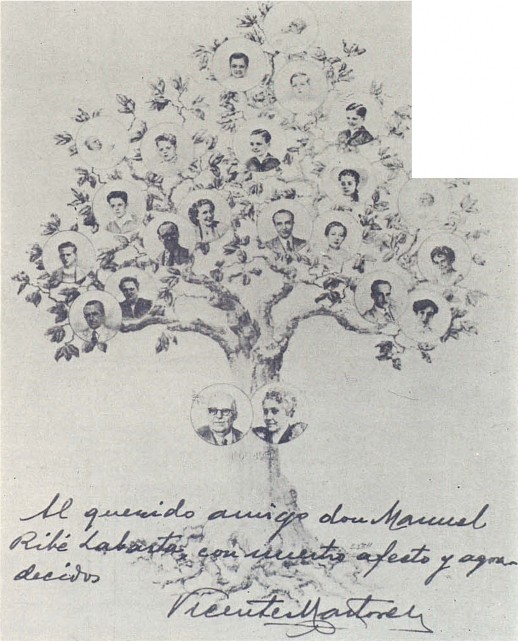 Al querido amigo don Manuel
Ribé Labarta, con nuestro afesto y agra-
decidos
Vicente Martorell